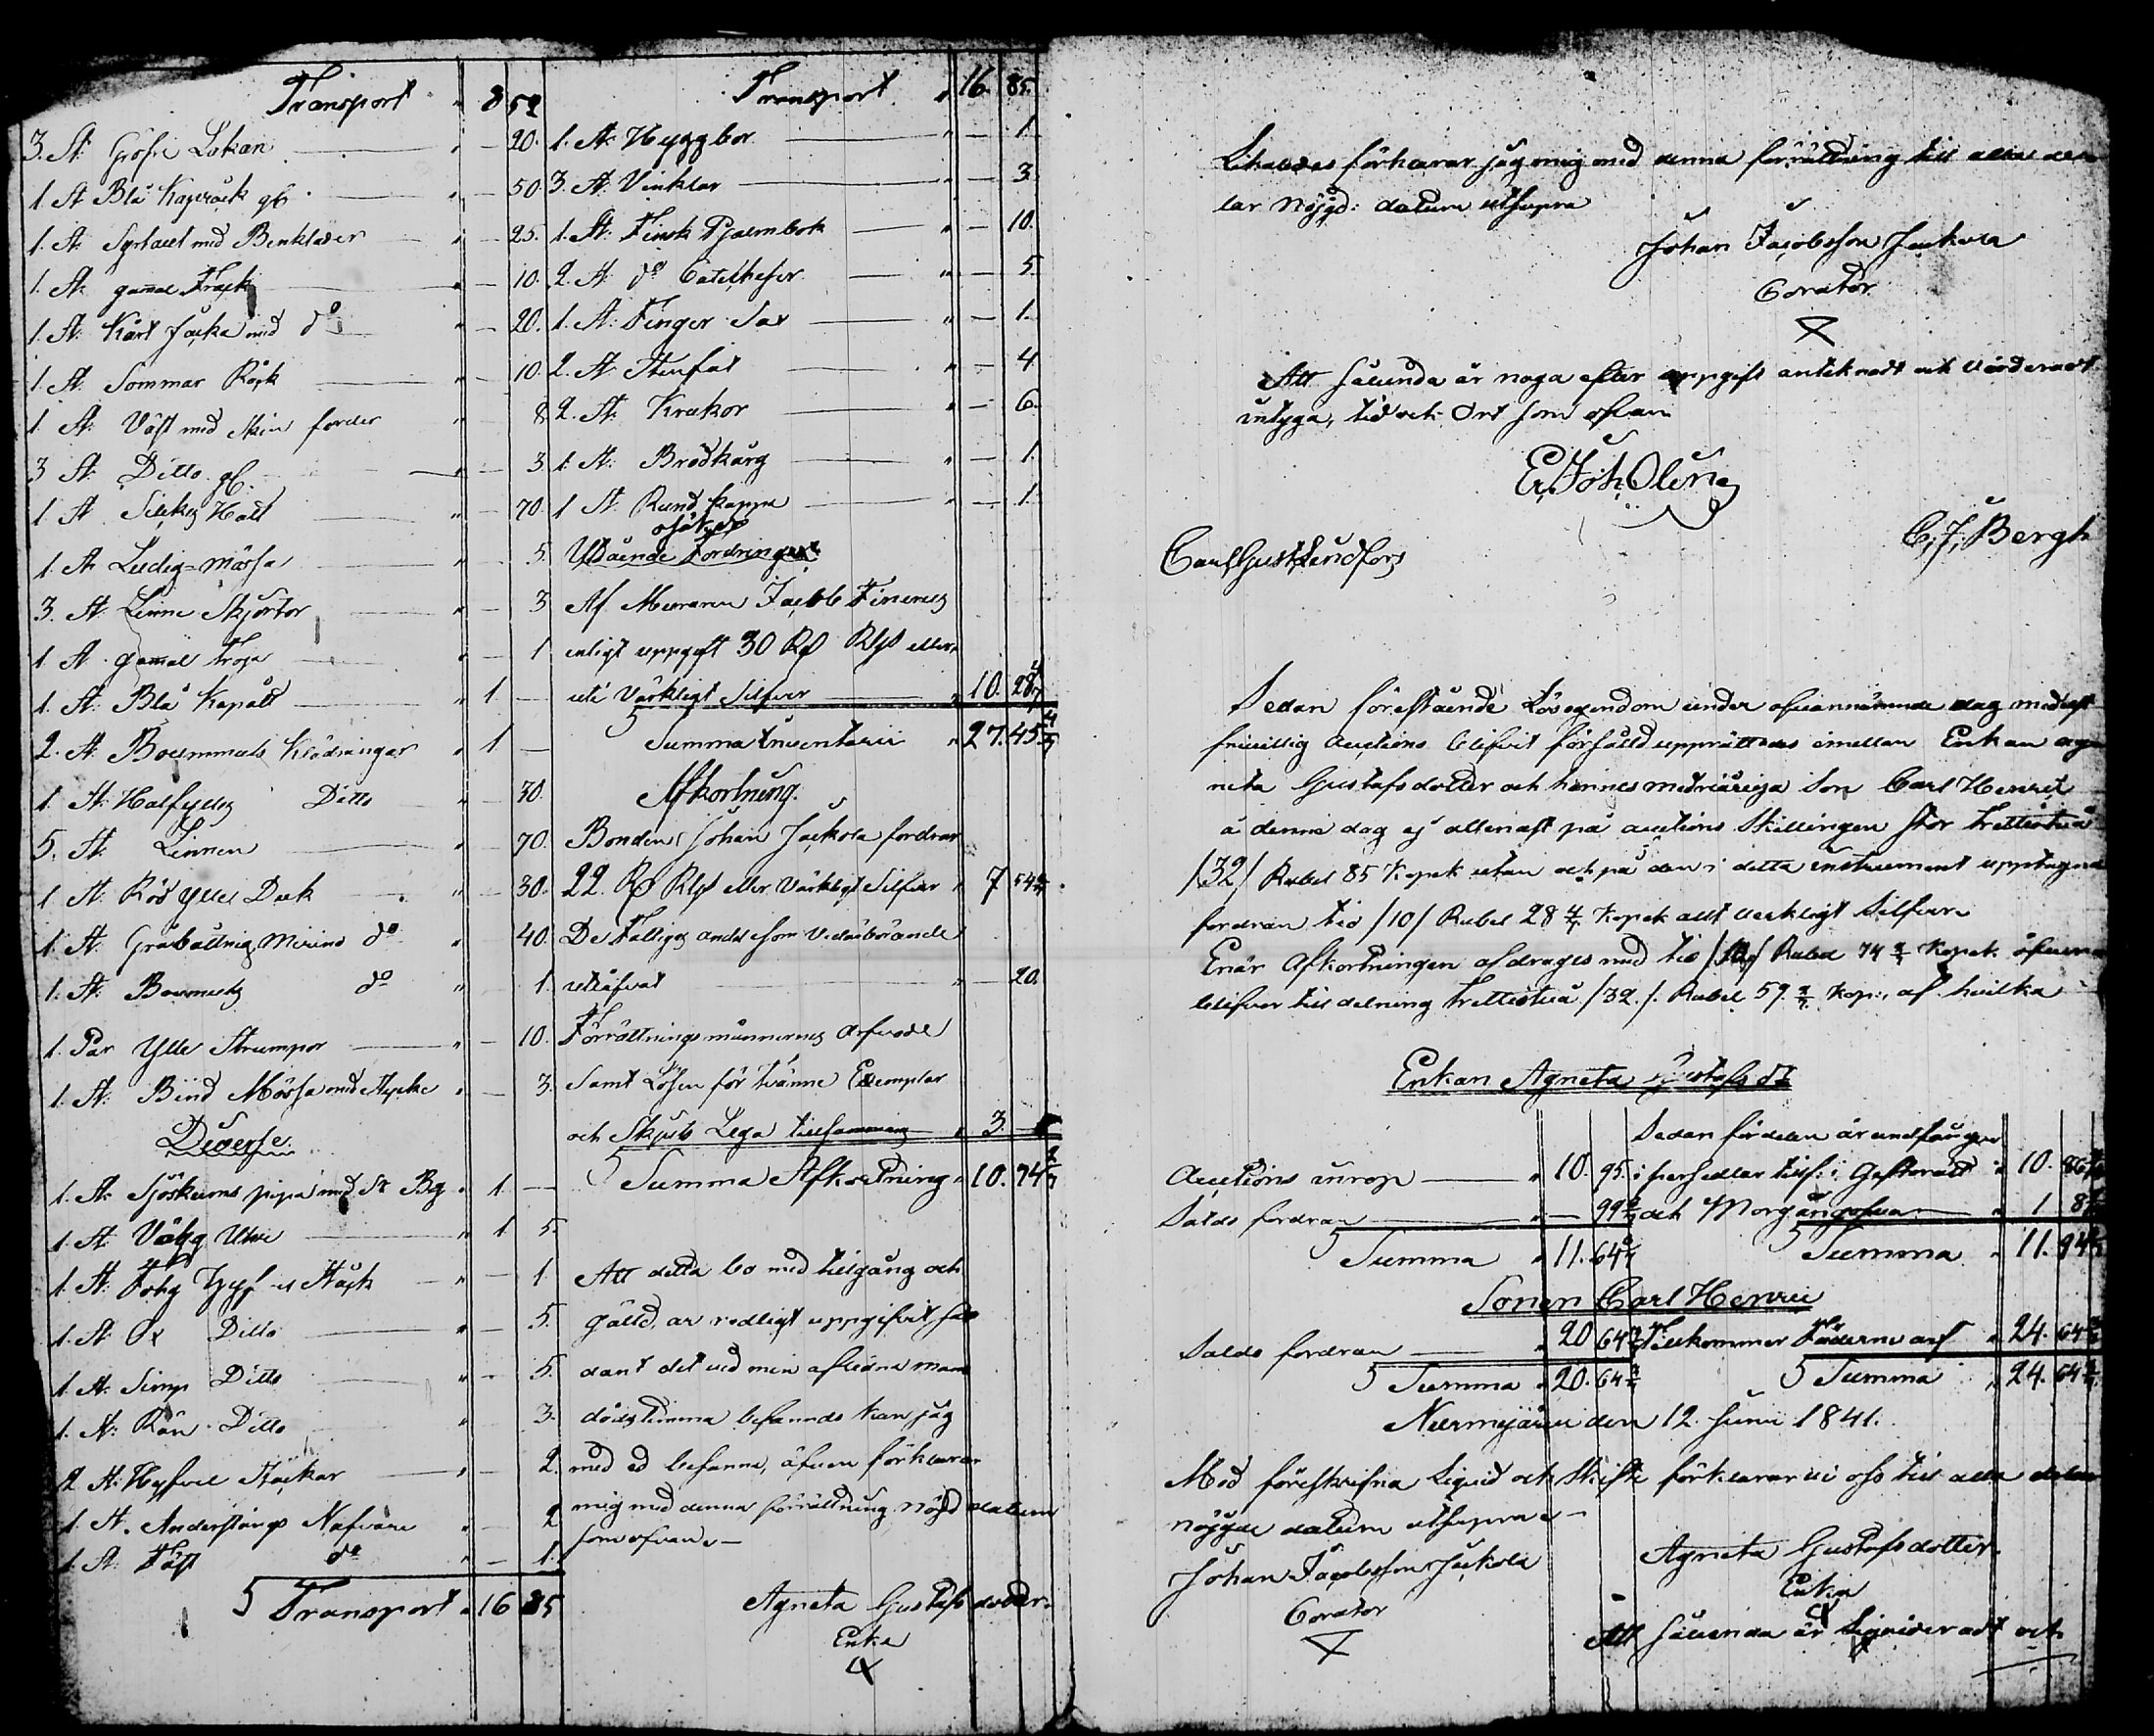 Transport " 8 52
3. St. Grofve Lakan " — 20.
1. St Blå Kaprock gl. " — 50
1. St. Syrtout med Benkläder " — 25.
1. St. gammal Frack " — 10.
1. St. Kårt Jacka med do " — 20.
1. St. Sommar Råck " — 10
1. St. Väst med skin foder " — 8
3 St. Ditto gl. " — 3
1 St. Silkes Hatt " — 70.
1. St. Ludig-mössa " — 5.
3. St. Linne Skjortor " — 3
1. St. gammal tröja " — 1
1. St. Blå Kapått " 1 —
2. St. Boummuls Klädningar " 1 —
1. St. Halfylles Ditto " — 30.
5. St. Linnen " — 70.
1 St. Röd Ylle Duk " — 30.
1. St. Gråbåttnig Merino do " — 40.
1. St. Boumuls do " — 1.
1. Par Ylle Strumpor " — 10.
1. St. Bind Mössa med stycke " — 3.
Diverse.
1. St. Sjöskums pipa med Sr Bg " 1 —
1. St. Vägg Uhr " 1 5.
1. St. Fog Hyfvel Stäck " — 1.
1. St. Ditto " — 5.
1. St. Simp Ditto " — 5.
1. St. Rån Ditto " — 3.
2 St. Hyfvel Stäckar " — 2.
1. St. Anderstångs Nafvare " — 2
1. St. Täljt do " — 1.
S Transport " 16 85
Transport " 16. 85.
1. St. Hyggbor " — 1
3. St. Vinklar " — 3
1. St. Finsk Psalmbok " — 10.
2. St. do Catekheser " — 5
1. St. Finger Sax " — 1.
2. St. Stenfat " — 4
2. St. Krukor " — 6.
1. St. Brödkårg " — 1
1 St. Rund kappa " — 1
osäkra
Utstående Fordringar
Af Muraren Jacob Finerus
enligt uppgift 30 Rd Rgs eller
uti Värkligt Silfver " 10. 28 4/7
S Summa Inventarii " 27. 45 4/7
Afkortning.
Bonden Johan Jackola fordrar
22. Rd Rgs eller Värkligt Silfver " 7 54 2/7
De Fattiges andel som vederbörande
utåfvat " — 20.
Förrättningsmännernes Arfvode
samt Lösen för tvänne Exemplar
och Skjuts Lega tillsammans " 3. —
S Summa Afkortning " 10. 74 2/7
Att detta bo med tillgång och
gäld, är redligt uppgifvit så
dant det vid min afledna mans
dödstimma befanns kan jag
med ed besanna, äfven förklarar
mig med denna förrättning nöjd datum
som ofvan. —
Agneta Gustafsdotter.
Enka
Likaledes förklarar jag mig med denna förrättning till alla de
lar nöjgd: datum utsupra
Johan Jacobsson Jackola
Corator
Att sålunda är noga efter uppgift anteknadt och värderadt
intyga, tid och Ort som ofvan
Er. Joh. Olenæ
C. J. Bergh
Carl Gust Lindfors
Sedan förestående Lösegendom under ofvannämnde dag medelst
frivillig Auctions blifvit försåld upprättades imellan Enkan Ag
neta Gustafsdotter och hennes medvåriga Son Carl Henric
å denna dag ej allenast på auctions Skillingen stor trettiotvå
/32/ Rubel 85 Kopek utan och på den i detta instrument upptagna
fordran tio /10/ Rubel 28 4/7 Kopek allt verkligt silfver
Enär Afkortningen afdrages med tio /10/ Rubel 74 2/7 Kopek öfver
blifver till delning trettiotvå /32./. Rubel 59. 2/7 Kop:, af hvilka
Enkan Agneta Gustafs dr
Sedan fördelen är undfången
Auctions inrop " 10. 95. i persedlar till: i Giftorätt " 10. 86
Saldo fordran " — 99 2/7 och Morgongåfva " 1 8
S Summa " 11. 64 S Summa " 11. 94
Sonen Carl Henric
Saldo fordran " 20 64 Tillkommer Fäderne arf " 24. 64
S Summa " 20. 64 S Summa " 24. 64
Nurmijärvi den 12 Junii 1841.
Med föreskrifna Liquid och Skifte förklarar vi oss till alla delar
nöjgde datum utsupra. —
Johan Jacobsson Jackola
Corator
Agneta Gustafsdotter.
Enka
Att sålunda är Liquideradt och